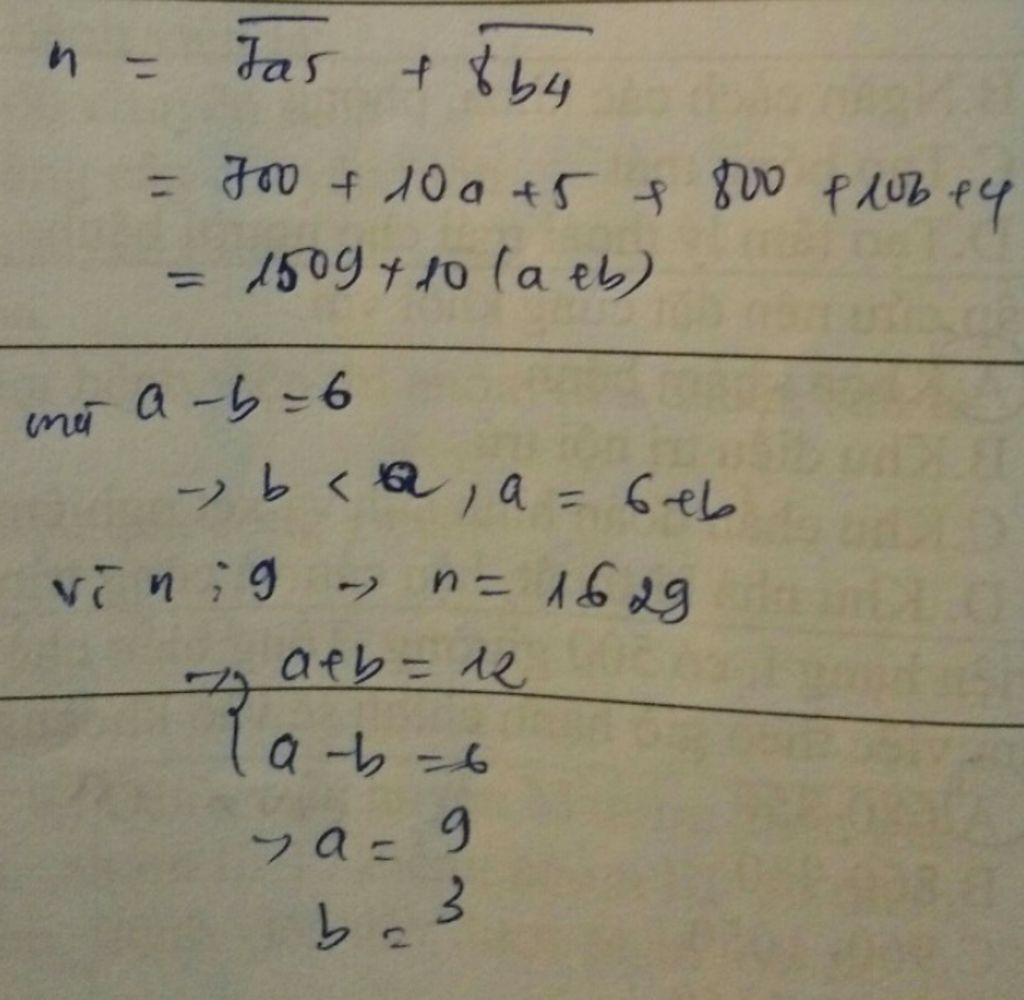 n = 7a5 + 8b4
= 700 + 10a + 5 + 800 + 10b + 4
= 1509 + 10 (a + b)
mà a - b = 6
→ b < a, a = 6 + b
vì n ⋮ 9 → n = 1629
→ { a + b = 12
a - b = 6
→ a = 9
b = 3